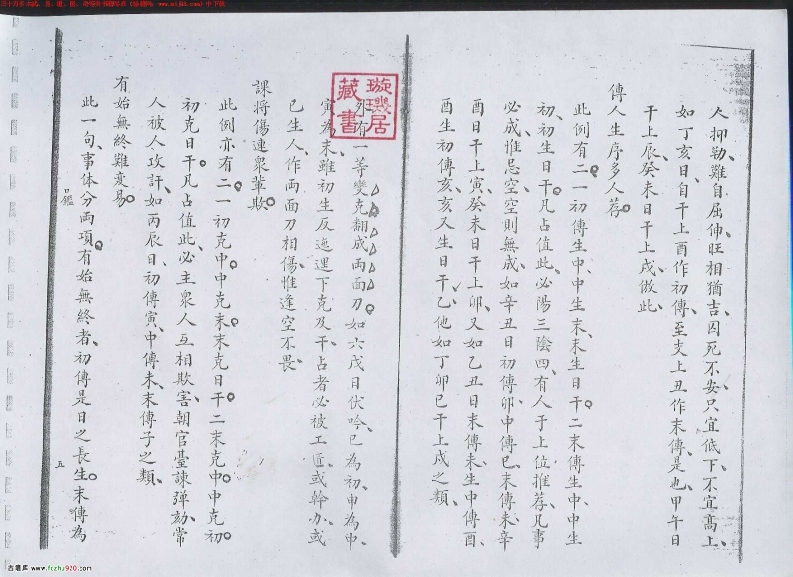 人抑勒、難自屈伸旺相猶吉、囚死不安只宜低下、不宜高上、
如丁亥日、自干上酉作初傳、至支上丑作末傳、是也、甲午日
干上辰、癸未日干上戌、倣此、
傳人生序多人荐。
此例有二一初傳生中、中生末、末生日干。二末傳生中、中生
初、初生日干。凡占值此、必陽三陰四、有人于上位推荐、凡事
必成、惟忌空空則無成、如辛丑日初傳卯中傳巳、末傳未、辛
酉日干上寅、癸未日干上卯、又如乙丑日末傳未生中傳酉、
酉生初傳亥、亥又生日干乙、他如丁卯巳干上戌之類、
璇璣居
藏書
外有一等變克翻成両面刀。如六戊日伏吟、巳為初、申為中、
寅為末、雖初生反迤運下克及干、占者必被工匠、或幹办、或
已生人、作両面刀相傷、惟逢空不畏、
課将傷連衆輩欺。
此例亦有二一初克中。中克末。末克日干二末克中。中克初。
初克日干。凡占值此、必主衆人互相欺害、朝官臺諫弾劾、常
人被人攻訐、如丙辰日、初傳寅、中傳未、末傳子之類、
有始無終難変易。
此一句、事体分両項。有始無終者、初傳是日之長生。末傳為
口鑑
五
古易库 www.fczhu920.com